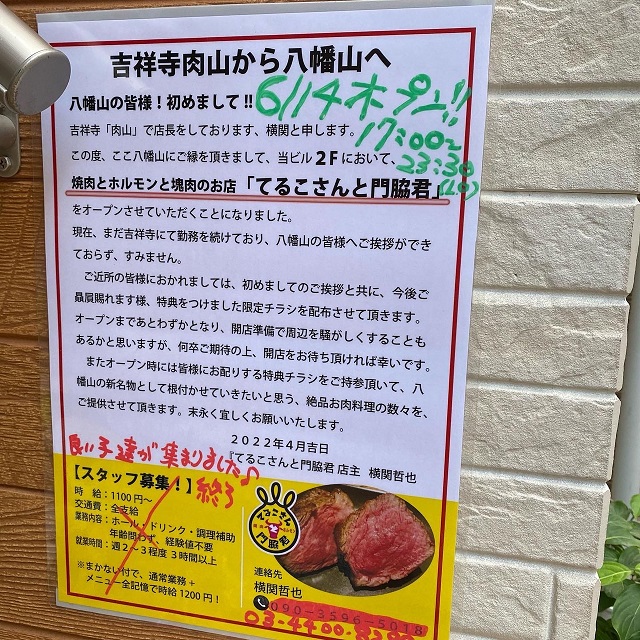 吉祥寺肉山から八幡山へ
八幡山の皆様！初めまして!!
6/14オープン!!
17:00~
23:30
(LO)
吉祥寺「肉山」で店長をしております、横関と申します。
この度、ここ八幡山にご縁を頂きまして、当ビル2Fにおいて、
焼肉とホルモンと塊肉のお店「てるこさんと門脇君」
をオープンさせていただくことになりました。
現在、まだ吉祥寺にて勤務を続けており、八幡山の皆様へご挨拶ができ
ておらず、すみません。
ご近所の皆様におかれましては、初めましてのご挨拶と共に、今後ご
贔屓賜れます様、特典をつけました限定チラシを配布させて頂きます。
オープンまであとわずかとなり、開店準備で周辺を騒がしくすることも
あるかと思いますが、何卒ご期待の上、開店をお待ち頂ければ幸いです。
またオープン時には皆様にお配りする特典チラシをご持参頂いて、八
幡山の新名物として根付かせていきたいと思う、絶品お肉料理の数々を、
ご提供させて頂きます。末永く宜しくお願いいたします。
2022年4月吉日
『てるこさんと門脇君 店主 横関哲也
良い子達が集まりました♪
【スタッフ募集！】
終了
時　給：1100円～
交通費：全支給
業務内容：ホール・ドリンク・調理補助
年齢問わず、経験値不要
就業時間：週2～3程度 3時間以上
※まかない付で、通常業務+
メニュー全記憶で時給1200円！
てるこさんと
門脇君
連絡先
横関哲也
090-3596-5018